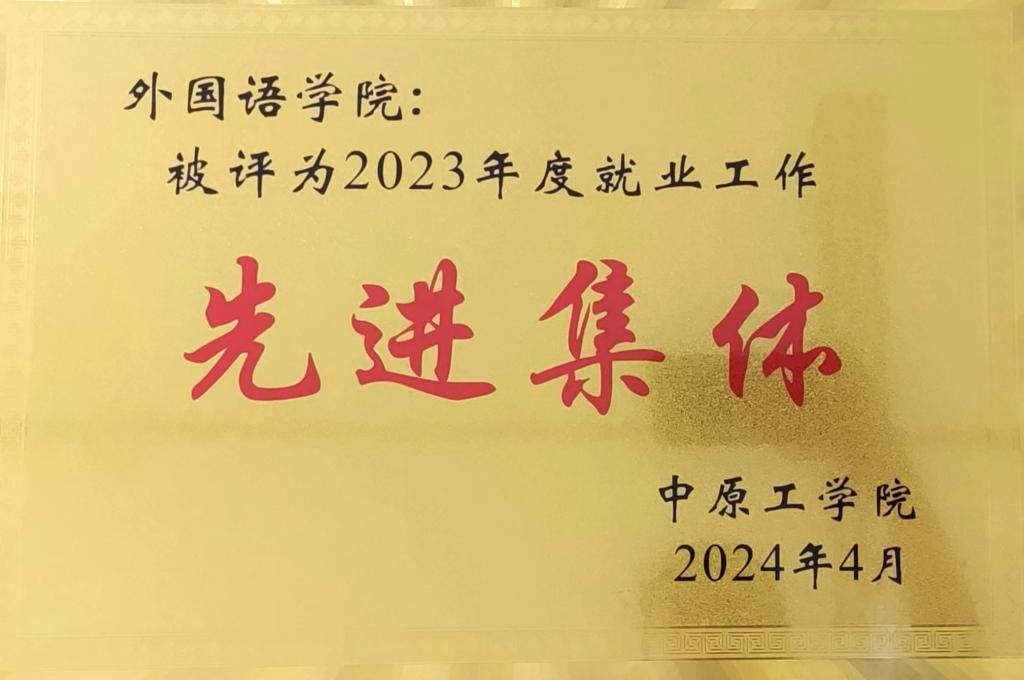 外国语学院：
被评为2023年度就业工作
先进集体
中原工学院
2024年4月